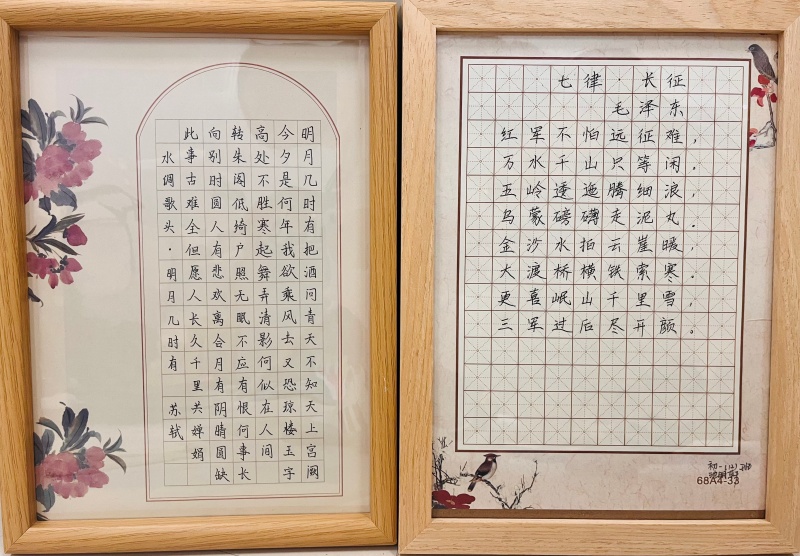 明月几时有把酒问青天不知天上宫阙
今夕是何年我欲乘风去又恐琼楼玉宇
高处不胜寒起舞弄清影何似在人间
转朱阁低绮户照无眠不应有恨何事长
向别时圆人有悲欢离合月有阴晴圆缺
此事古难全但愿人长久千里共婵娟
水调歌头·明月几时有 苏轼
七律·长征
毛泽东
红军不怕远征难,
万水千山只等闲.
五岭逶迤腾细浪,
乌蒙磅礴走泥丸.
金沙水拍云崖暖,
大渡桥横铁索寒.
更喜岷山千里雪,
三军过后尽开颜.
初一(2)班
68A4-33